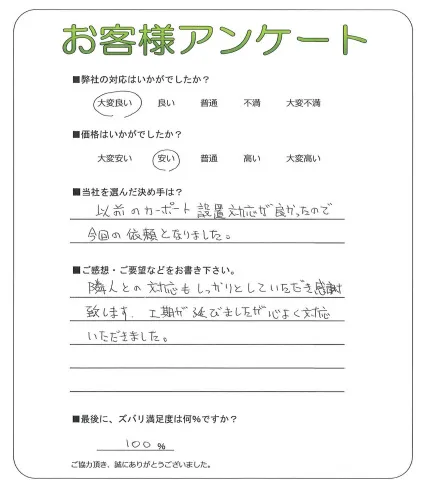 お客様アンケート
■弊社の対応はいかがでしたか？
大変良い 良い 普通 不満 大変不満
■価格はいかがでしたか？
大変安い 安い 普通 高い 大変高い
■当社を選んだ決め手は？
以前のカーポート設置対応が良かったので
今回の依頼となりました。
■ご感想・ご要望などをお書き下さい。
隣人との対応もしっかりとしていただき感謝
致します。工期が延びましたが心よく対応
いただきました。
■最後に、ズバリ満足度は何％ですか？
100 ％
ご協力頂き、誠にありがとうございました。